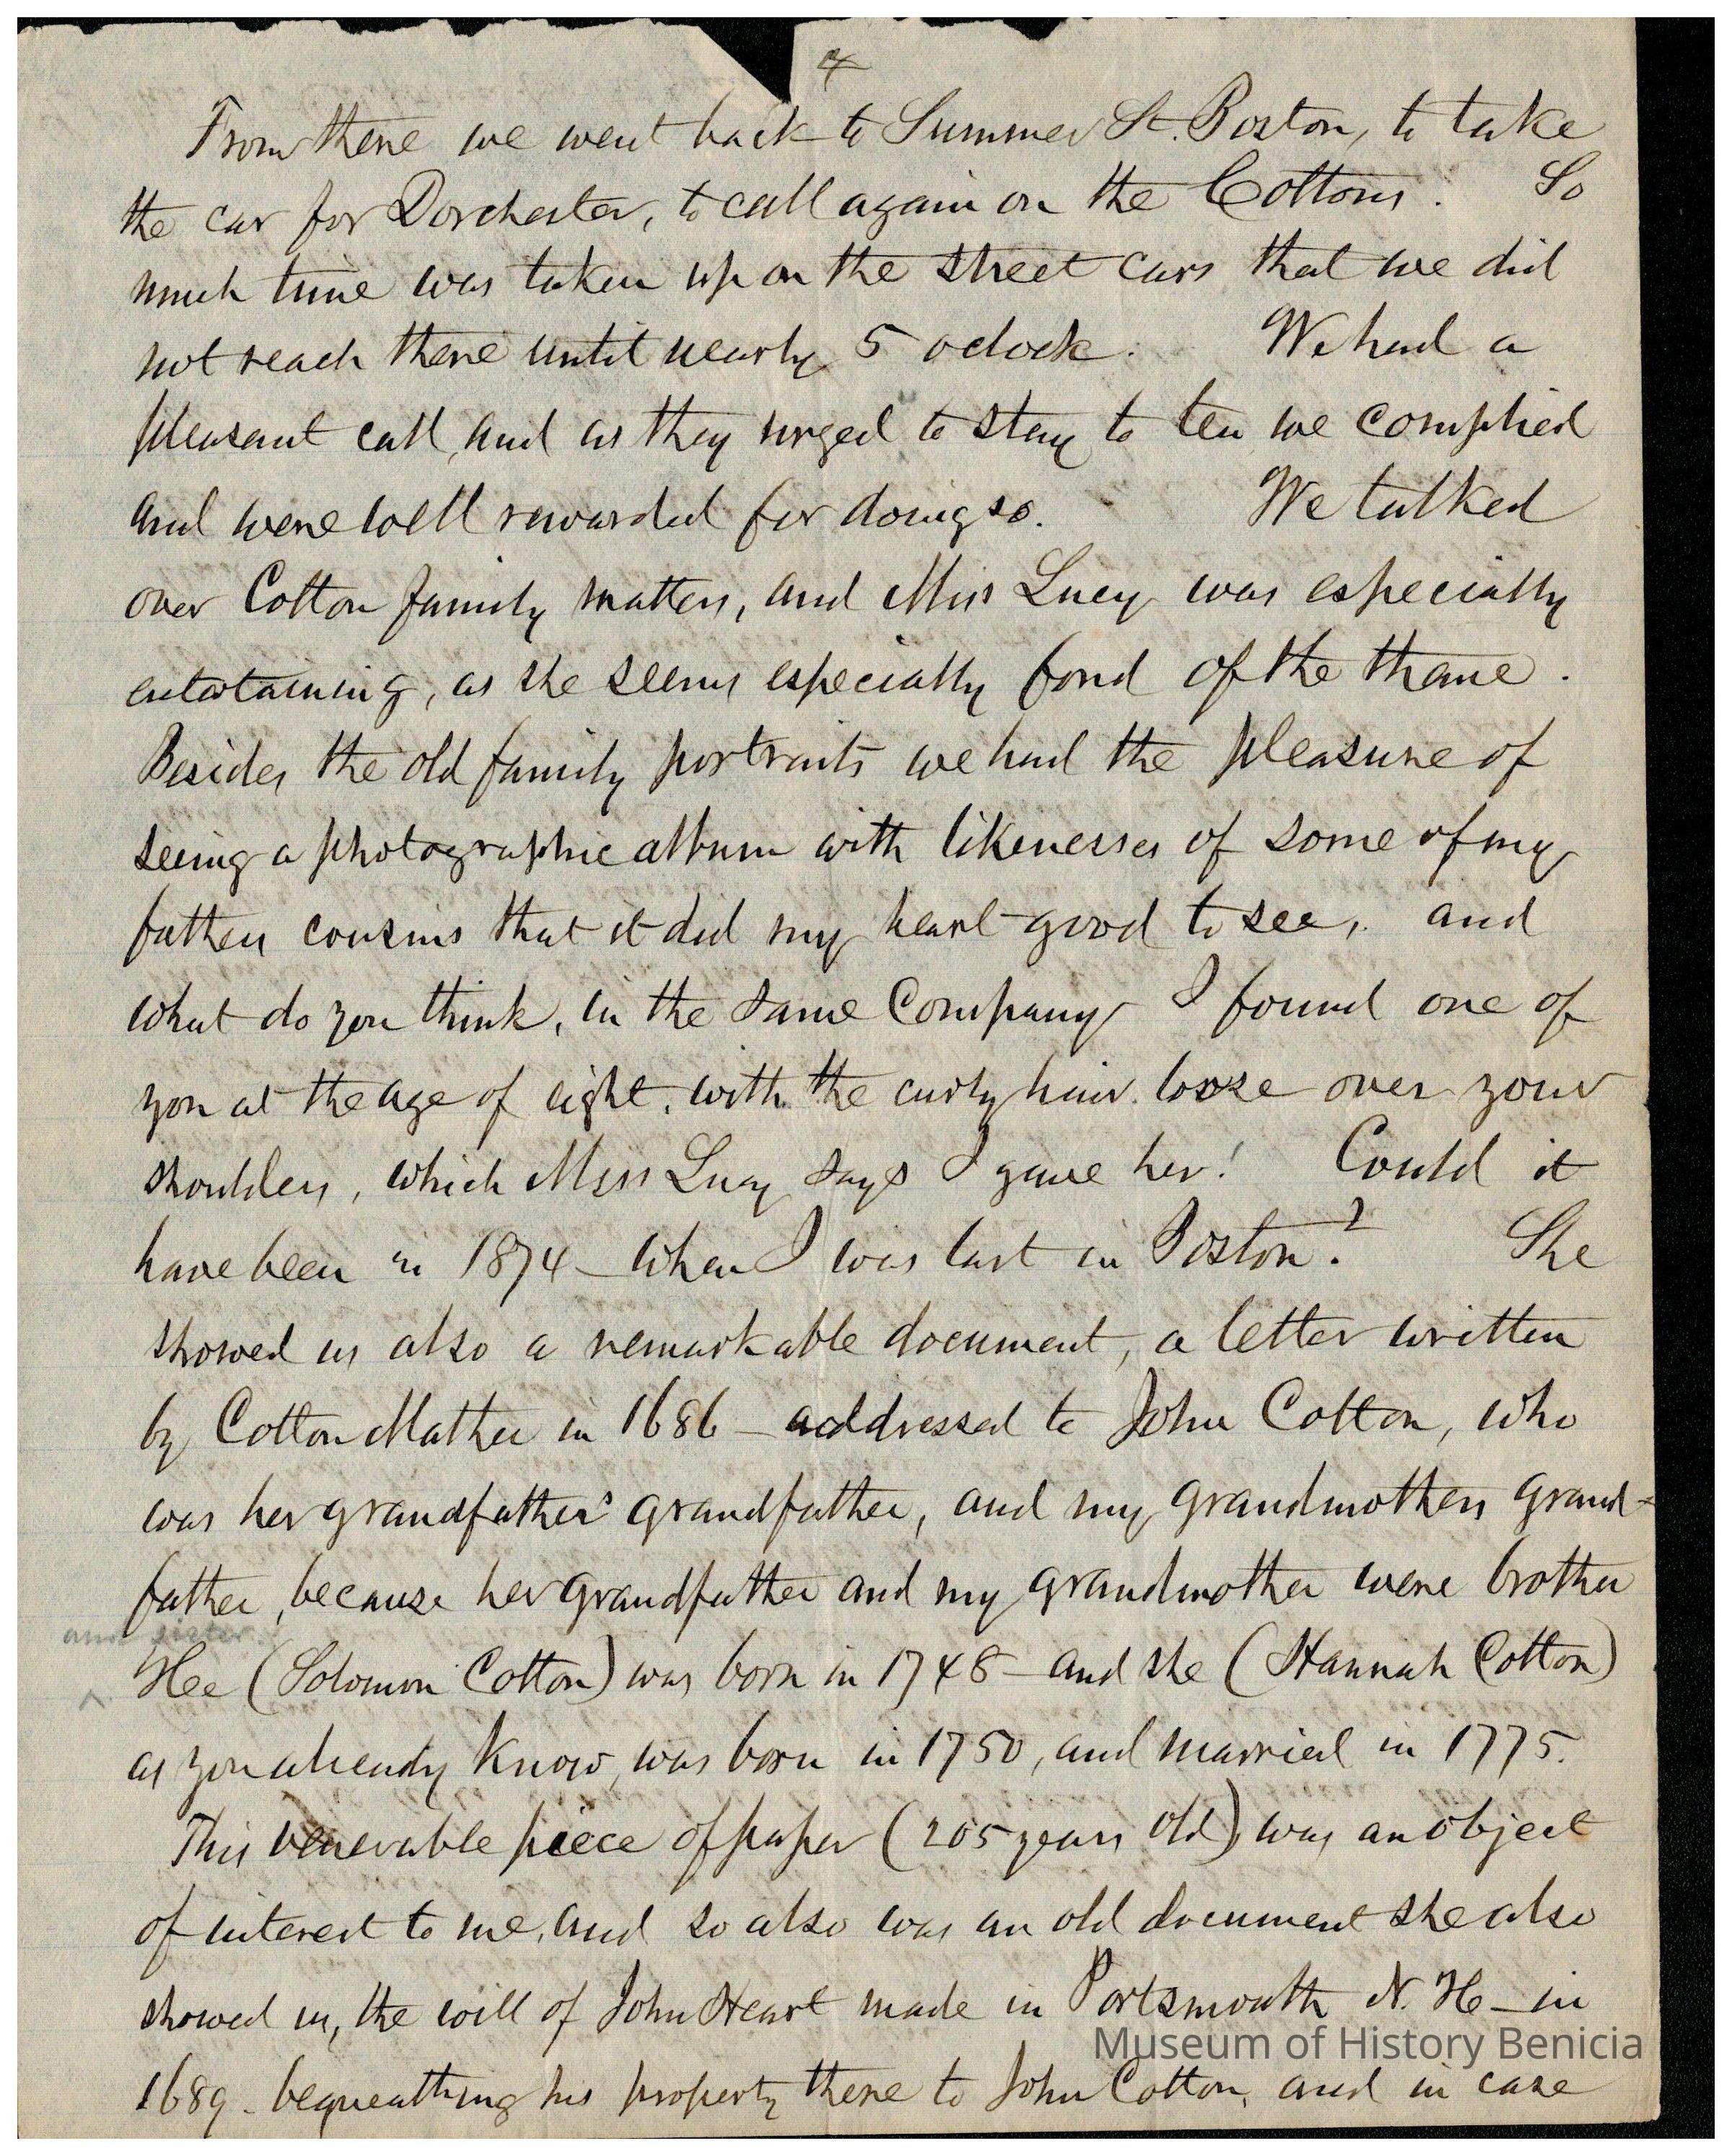 4
From there we went back to Summer St. Boston, to take
the car for Dorchester, to call again on the Cottons. So
much time was taken up on the street cars that we did
not reach there until nearly 5 oclock. We had a
pleasant call, and as they urged to stay to tea we complied
and were well rewarded for doing so. We talked
over Cotton family matters, and Miss Lucy was especially
entertaining, as she seems especially fond of the theme.
Besides the old family portraits we had the pleasure of
seeing a photographic album with likenesses of some of my
fathers cousins that it did my heart good to see, and
what do you think, in the same Company I found one of
you at the age of eight, with the curly hair loose over your
shoulders, which Miss Lucy says I gave her! Could it
have been in 1874 – when I was last in Boston? She
showed us also a remarkable document, a letter written
by Cotton Mather in 1686 – addressed to John Cotton, who
was her grandfather's grandfather, and my grandmothers grand-
father, because her grandfather and my grandmother were brother
and sister.
^ Hee (Solomon Cotton) was born in 1748 – and she (Hannah Cotton)
as you already know, was born in 1750, and married in 1775.
This venerable piece of paper (205 years old) was an object
of interest to me, and so also was an old document she also
showed us, the will of John Heart made in Portsmouth N. H – in
1689 – bequeathing his property there to John Cotton, and in case
Museum of History Benicia